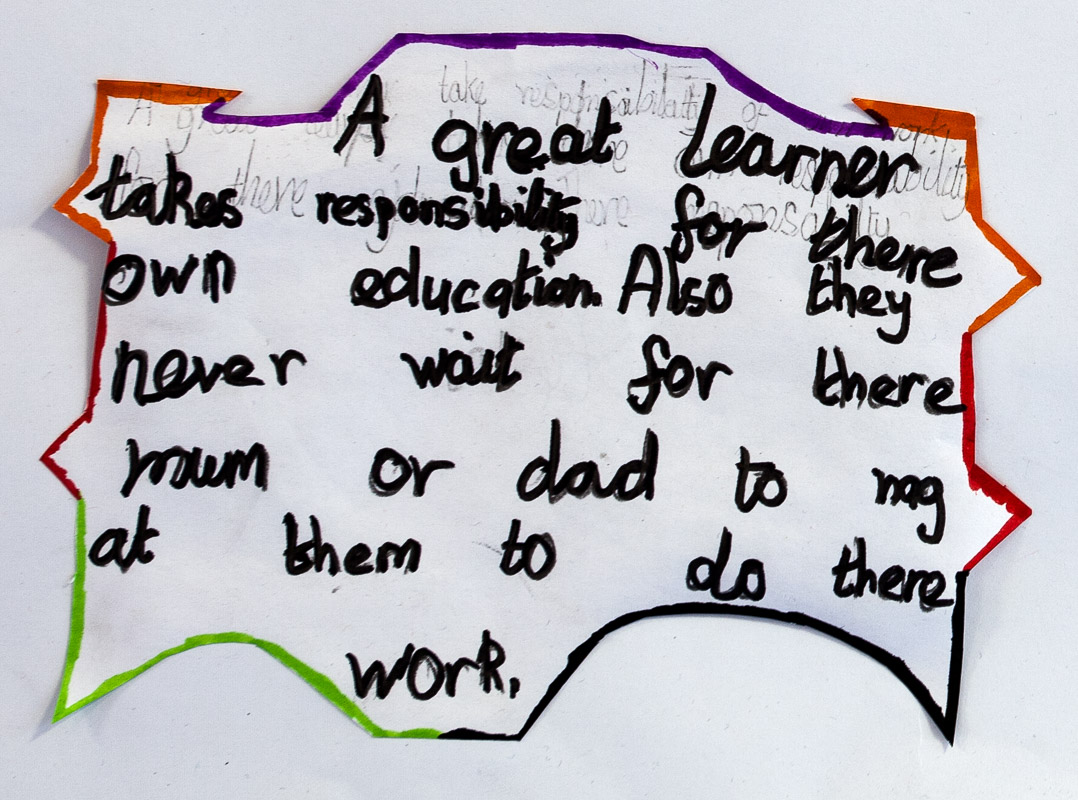 A great learner
takes responsibility for there
own education. Also they
never wait for there
mum or dad to nag
at them to do there
work.